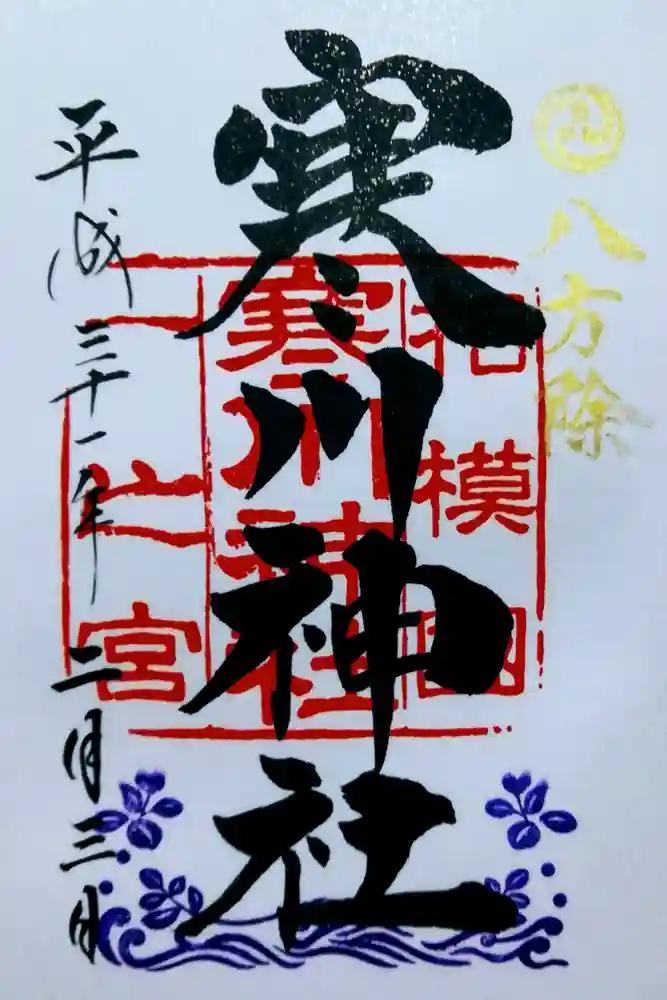 八方除
寒川神社
相模國
寒川神社
一之宮
平成三十一年二月三日